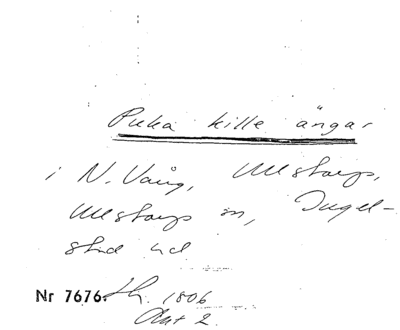 Puka kille ängar
i N. Vång, Ullstorps,
Ullstorps sn, Ingel-
stad hd
Nr 7676. 1806
Akt 2